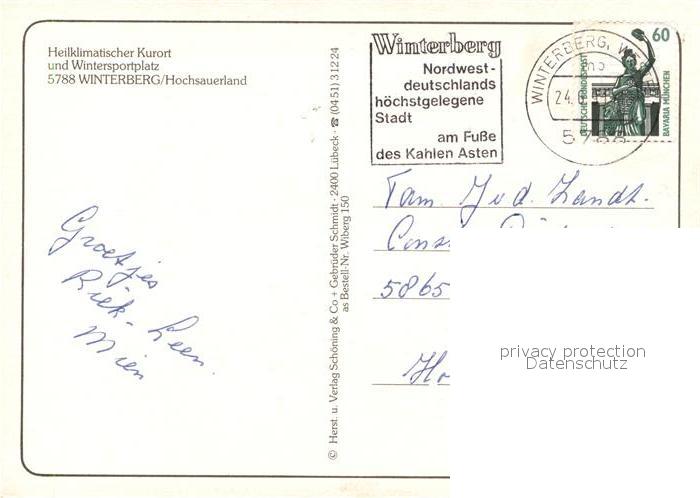 Heilklimatischer Kurort
und Wintersportplatz
5788 WINTERBERG/Hochsauerland
© Herst. u. Verlag Schöning & Co + Gebrüder Schmidt · 2400 Lübeck · ☎ (0451) 31224
as Bestell-Nr. Wiberg 150
Winterberg
Nordwest-
deutschlands
höchstgelegene
Stadt
am Fuße
des Kahlen Asten
WINTERBERG, WE
24.
5788
60
DEUTSCHE BUNDESPOST
BAVARIA MÜNCHEN
Fam. Jud. Zandt.
Cons.
5865
Ho
Groetjes
Riek - Leen.
Mien
privacy protection
Datenschutz